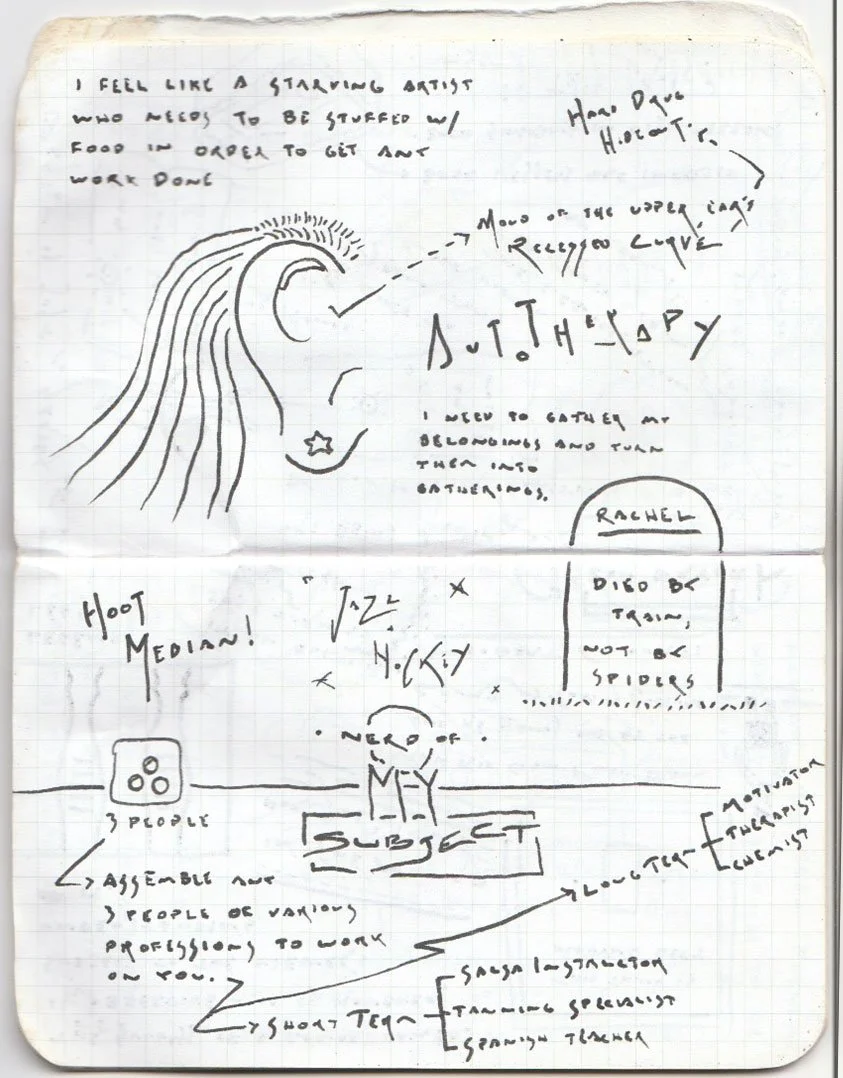 I FEEL LIKE A STARVING ARTIST
WHO NEEDS TO BE STUFFED W/
FOOD IN ORDER TO GET ANY
WORK DONE
HARD DRUG
MOLD OF THE UPPER EAR'S
RELEASED CURVE
AUTOTHERAPY
I NEED TO GATHER MY
BELONGINGS AND TURN
THEM INTO
GATHERINGS.
RACHEL
DIED BY
TRAIN,
NOT BY
SPIDERS
HOOT
MEDIAN!
JAZZ
HOCKEY
NERD OF
MY
SUBJECT
3 PEOPLE
ASSEMBLE ANY
3 PEOPLE OF VARIOUS
PROFESSIONS TO WORK
ON YOU.
LONG TERM
MOTIVATOR
THERAPIST
CHEMIST
SHORT TERM
SALSA INSTRUCTOR
TANNING SPECIALIST
SPANISH TEACHER